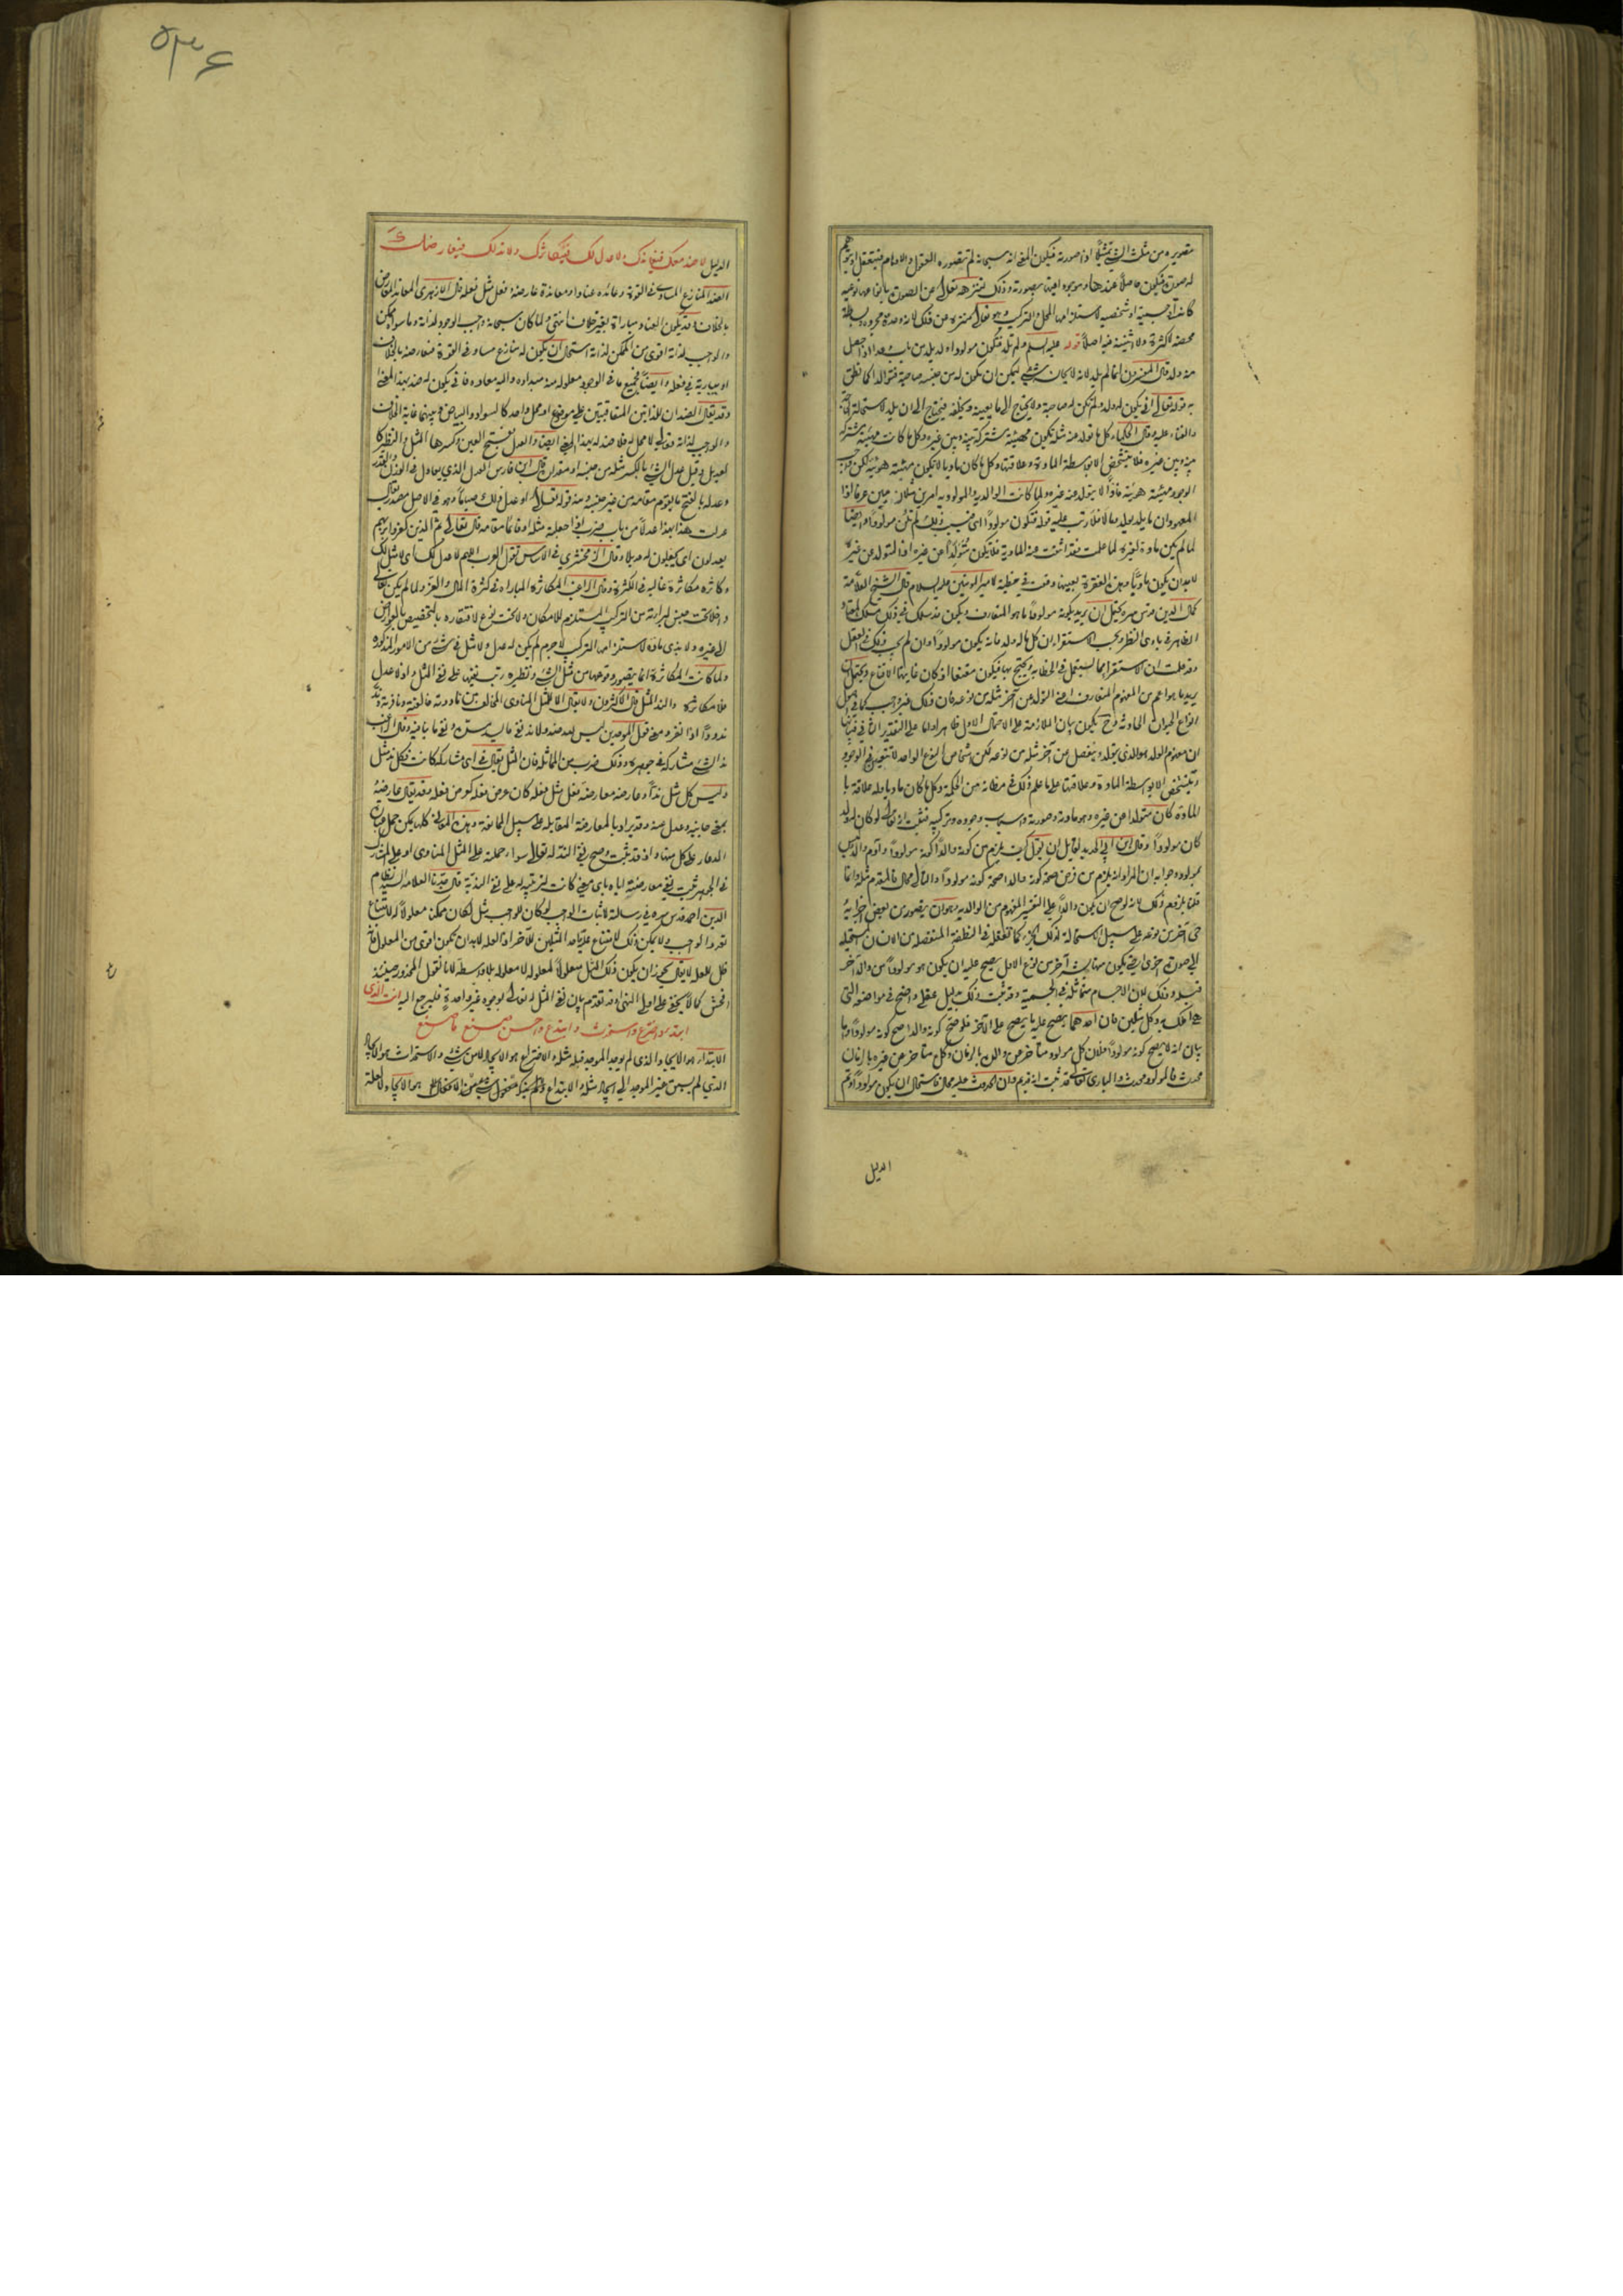 تصويره من مثلت الشي تمثيلا اذا صورته فيكون المعنى انه سبحانه لم تصوره العقول والاوهام فيتعقل او يتوهم
له صورة فيكون حاصلا عندها وموجودا فيها بصورته وذلك لتنزهه تعالى عن الصورة بانحائها نوعية
كانت او جسمية او شخصية لاستلزامها المحل والتركيب وهو تعالى منزه عن ذلك لانه وحدة مجردة وبساطة
محضة لا كثرة ولا اثنينية فيه اصلا قوله عليه السلم ولم تلد فتكون مولودا ولد يلد من باب وعد اذا حصل
منه ولد قال المفسرون انما لم يلد لانه لا يجانس شي ليمكن ان يكون له من جنسه صاحبة فيتوالدا كما نطق
به قوله تعالى انى يكون له ولد ولم تكن له صاحبة ولا يحتاج الى ما يعينه ويخلفه فيحتاج الى ان يلد لاستحالة الحاجة
والفناء عليه وقال الحكماء كل ما تولد عنه مثله تكون مهيته مشتركة بينه وبين غيره وكل ما كانت مهيته مشتركة
بينه وبين غيره فلا يتشخص الا بواسطة المادة وعلاقتها وكل ما كان ماديا لا يكون مهيته هويته لكن واجب
الوجود مهيته هويته فاذا لا يتولد عنه غيره ولما كانت الوالدية والمولودية امرين متلازمين عرفا اذا
المعهود ان ما يلد يولد وما لا فلا رتب عليه قوله فتكون مولودا اى فيجب بذلك ثم تكون مولودا وايضا
لما لم يكن مادة لغيره لما علمت فقد انتفت عنه المادية فلا يكون متولدا عن غيره اذ المتولد عن غيره
لابد ان يكون ماديا وهذه الفقرة بعينها وقعت في خطبة لامير المؤمنين عليه السلام قال الشيخ العلامة
كمال الدين قدس سره يحتمل ان يريد بكونه مولودا ما هو المتعارف ويكون قد سلك في ذلك مسلك المعتاد
الظاهر في بادى النظر وبحسب الاستقراء ان كل ما له ولد فانه يكون مولودا وان لم يجب ذلك في العقل
وقد علمت ان الاستقراء مما يستعمل في الخطابة ويحتج بها فيكون مقنعا اذ كان غايتها الاقناع ويحتمل ان
يريد ما هو اعم من المفهوم المتعارف اعنى التولد عن آخر مثله من نوعه فان ذلك غير واجب كما في اصول
انواع الحيوان الحادثة وح يكون بيان الملازمة على الاحتمال الاول ظاهرا واما على التقدير الثاني فبيانها
ان مفهوم الولد هو الذى يتولد وينفصل من آخر مثله من نوعه لكن اشخاص النوع الواحد لا تتعين في الوجود
وتتشخص الا بواسطة المادة وعلاقتها على ما علم ذلك في مظانه من الحكمة وكل ما كان ماديا وله علاقة با
لمادة كان متولدا عن غيره وهو مادته وصورته واسباب وجوده وتركيبه فثبت انه تعالى لو كان له ولد
كان مولودا وقال ابن ابى الحديد لقايل ان يقول كيف يلزم من كونه والدا كونه مولودا وآدم والد وليس
بمولود وجوابه ان المراد انه يلزم من فرض صحة كونه والدا صحة كونه مولودا والتالى محال فالمقدم مثله وانما
قلنا يلزم ذلك لانه لو صح ان يكون والدا على التفسير المفهوم من الوالدية وهو ان يتصور من بعض اجزائه
حى آخر من نوعه على سبيل الاستحالة لذلك الجزء كما نعقله في النطفة المنفصلة من الانسان المستحيلة
الى صورة اخرى حتى يكون منها بشر آخر من نوع الاول يصح عليه ان يكون هو مولودا من والد آخر
قبله وذلك لان الاجسام متماثلة في الجسمية وقد ثبت ذلك بدليل عقلى واضح في مواضعه التى
هى املك به وكل مثلين فان احدهما يصح عليه ما يصح على الآخر فلو صح كونه والدا صح كونه مولودا واما
بيان انه لا يصح كونه مولودا فلان كل مولود متاخر عن والده بالزمان وكل متاخر عن غيره بالزمان
محدث فالمولود محدث والبارى تعالى قد ثبت انه قديم وان الحدوث عليه محال فاستحال ان يكون مولودا وتم
الدليل
۵۳۶
الدليل لا ضد معك فيعاندك ولا عدل لك فيكاثرك ولا ند لك فيعارضك
الضد المنازع المساوى في القوة وعانده عنادا ومعاندة عارضه وفعل مثل فعله قال الازهرى المعاند المعارض
بالخلاف وقد يكون العناد مباراة بغير خلاف انتهى ولما كان سبحانه واجب الوجود لذاته وما سواه ممكن
والواجب لذاته اقوى من الممكن لذاته استحال ان يكون له منازع مساو في القوة فيعارضه بالخلاف
او يباريه في فعله وايضا فجميع ما في الوجود معلول له منه مبداه واليه معاده فانى يكون له ضد بهذا المعنى
وقد يقال الضدان للذاتين المتعاقبتين على موضوع او محل واحد كالسواد والبياض وبينهما غاية الخلاف
والواجب لذاته تعالى لا محل له فلا ضد له بهذا المعنى ايضا والعدل بفتح العين وكسرها المثل والنظير كا
لعديل وقيل عدل الشي بالكسر مثله من جنسه او مقداره قال ابن فارس العدل الذي يعادل في الوزن والقدر
وعدله بالفتح ما يقوم مقامه من غير جنسه ومنه قوله تعالى او عدل ذلك صياما وهو في الاصل مصدر يقال
عدلت هذا بهذا عدلا من باب ضرب اذا جعلته مثله او قائما مقامه قال تعالى ثم الذين كفروا بربهم
يعدلون اى يجعلون له عديلا وقال الزمخشري في الاساس تقول العرب اللهم لا عدل لك اى لا مثل لك
وكاثره مكاثرة غالبه في الكثرة وقال الراغب المكاثرة المباراة في كثرة المال والعز ولما لم يكن تعالى
داخلا تحت جنس لبرائته من التركيب المستلزم للامكان ولا تحت نوع لافتقاره بالتخصيص بالعوارض
الى غيره ولا بذى مادة لاستلزامها التركيب لا جرم لم يكن له عدل ولا مثل في شئ من الامور المذكورة
ولما كانت المكاثرة انما يتصور وقوعها من مثل الشي ونظيره رتب نفيها على نفى المثل واذ لا عدل
فلا مكاثرة والند المثل قال الاكثرون ولا يقال الا للمثل المناوى المخالف من ناددته خالفته ونافرته وند
ندودا اذا نفر ومعنى قول الموحدين ليس لله ضد ولا ند نفى ما يسد مسده ونفى ما ينافيه وقال الراغب
ند الشي مشاركه في جوهره وذلك ضرب من المماثلة فان المثل يقال في اى مشاركة كانت فكل ند مثل
وليس كل مثل ندا وعارضه معارضة فعل مثل فعله كان عرض فعله كعرض فعله وقد يقال عارضته
بمعنى جانبته وعدل عنه وقد يراد بالمعارضة المقابلة على سبيل الممانعة وهذه المعانى كلها يمكن حمل عبارة
الدعاء على كل منها واذ قد ثبت وصح نفى الند له تعالى سواء حملته على المثل المناوى او على المشارك
في الجوهر ثبت نفى معارضته اياه باى معنى كانت لترتبه له على نفى الندية قال جدنا العلامة السيد نظام
الدين احمد قدس سره في رسالته لاثبات الواجب لو كان للواجب مثل لكان ممكنا معلولا له لامتناع
تعدد الواجب ولا يمكن ذلك لامتناع علية احد المثلين للآخر اذ العلة لابد ان تكون اقوى من المعلول فلا مثل
للعلة لا يقال يجوز ان يكون ذلك المثل معلولا لمعلوله لا معلوله بلا واسطة لانا نقول المحذور حينئذ
افحش كما لا يخفى على اولى النهى وقد تقدم بيان نفى المثل له تعالى بوجوه غير واحدة فليرجع اليه انت الذى
ابتدء واخترع واستحدث وابتدع واحسن صنع ما صنع
الابتداء هو الايجاد الذى لم يوجد الموجد قبله مثله والاختراع هو الايجاد لا من شئ والاستحداث هو الايجاد
الذى لم يسبق غير الموجد الى ايجاد مثله والابتداع هو الايجاد لا لعلة